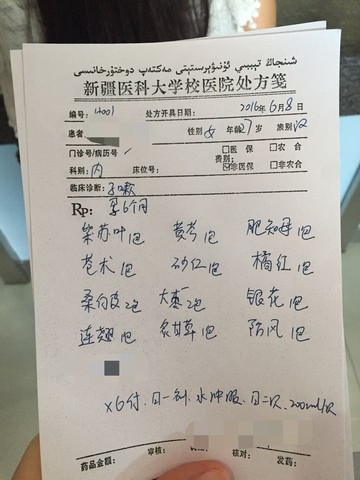 شىنجاڭ تېببىي ئۇنىۋېرسىتېتى مەكتەپ دوختۇرخانىسى
新疆医科大学校医院处方笺
编号 4001 处方开具日期: 2016年6月8日
患者 性别 女 年龄27岁 族别 汉
门诊号/病历号: 费别: □医保 □农合
科别: 内 床位号: ☑非医保 □非农合
临床诊断: 咳
Rp: 孕6个月
紫苏叶1包 黄芩1包 肥知母1包
苍术1包 砂仁1包 橘红1包
桑白皮2包 大枣2包 银花1包
连翘1包 炙甘草1包 防风1包
x6付. 日一剂. 水冲服. 日二次. 200ml/次
药品金额: 审核: 核对: 发药: